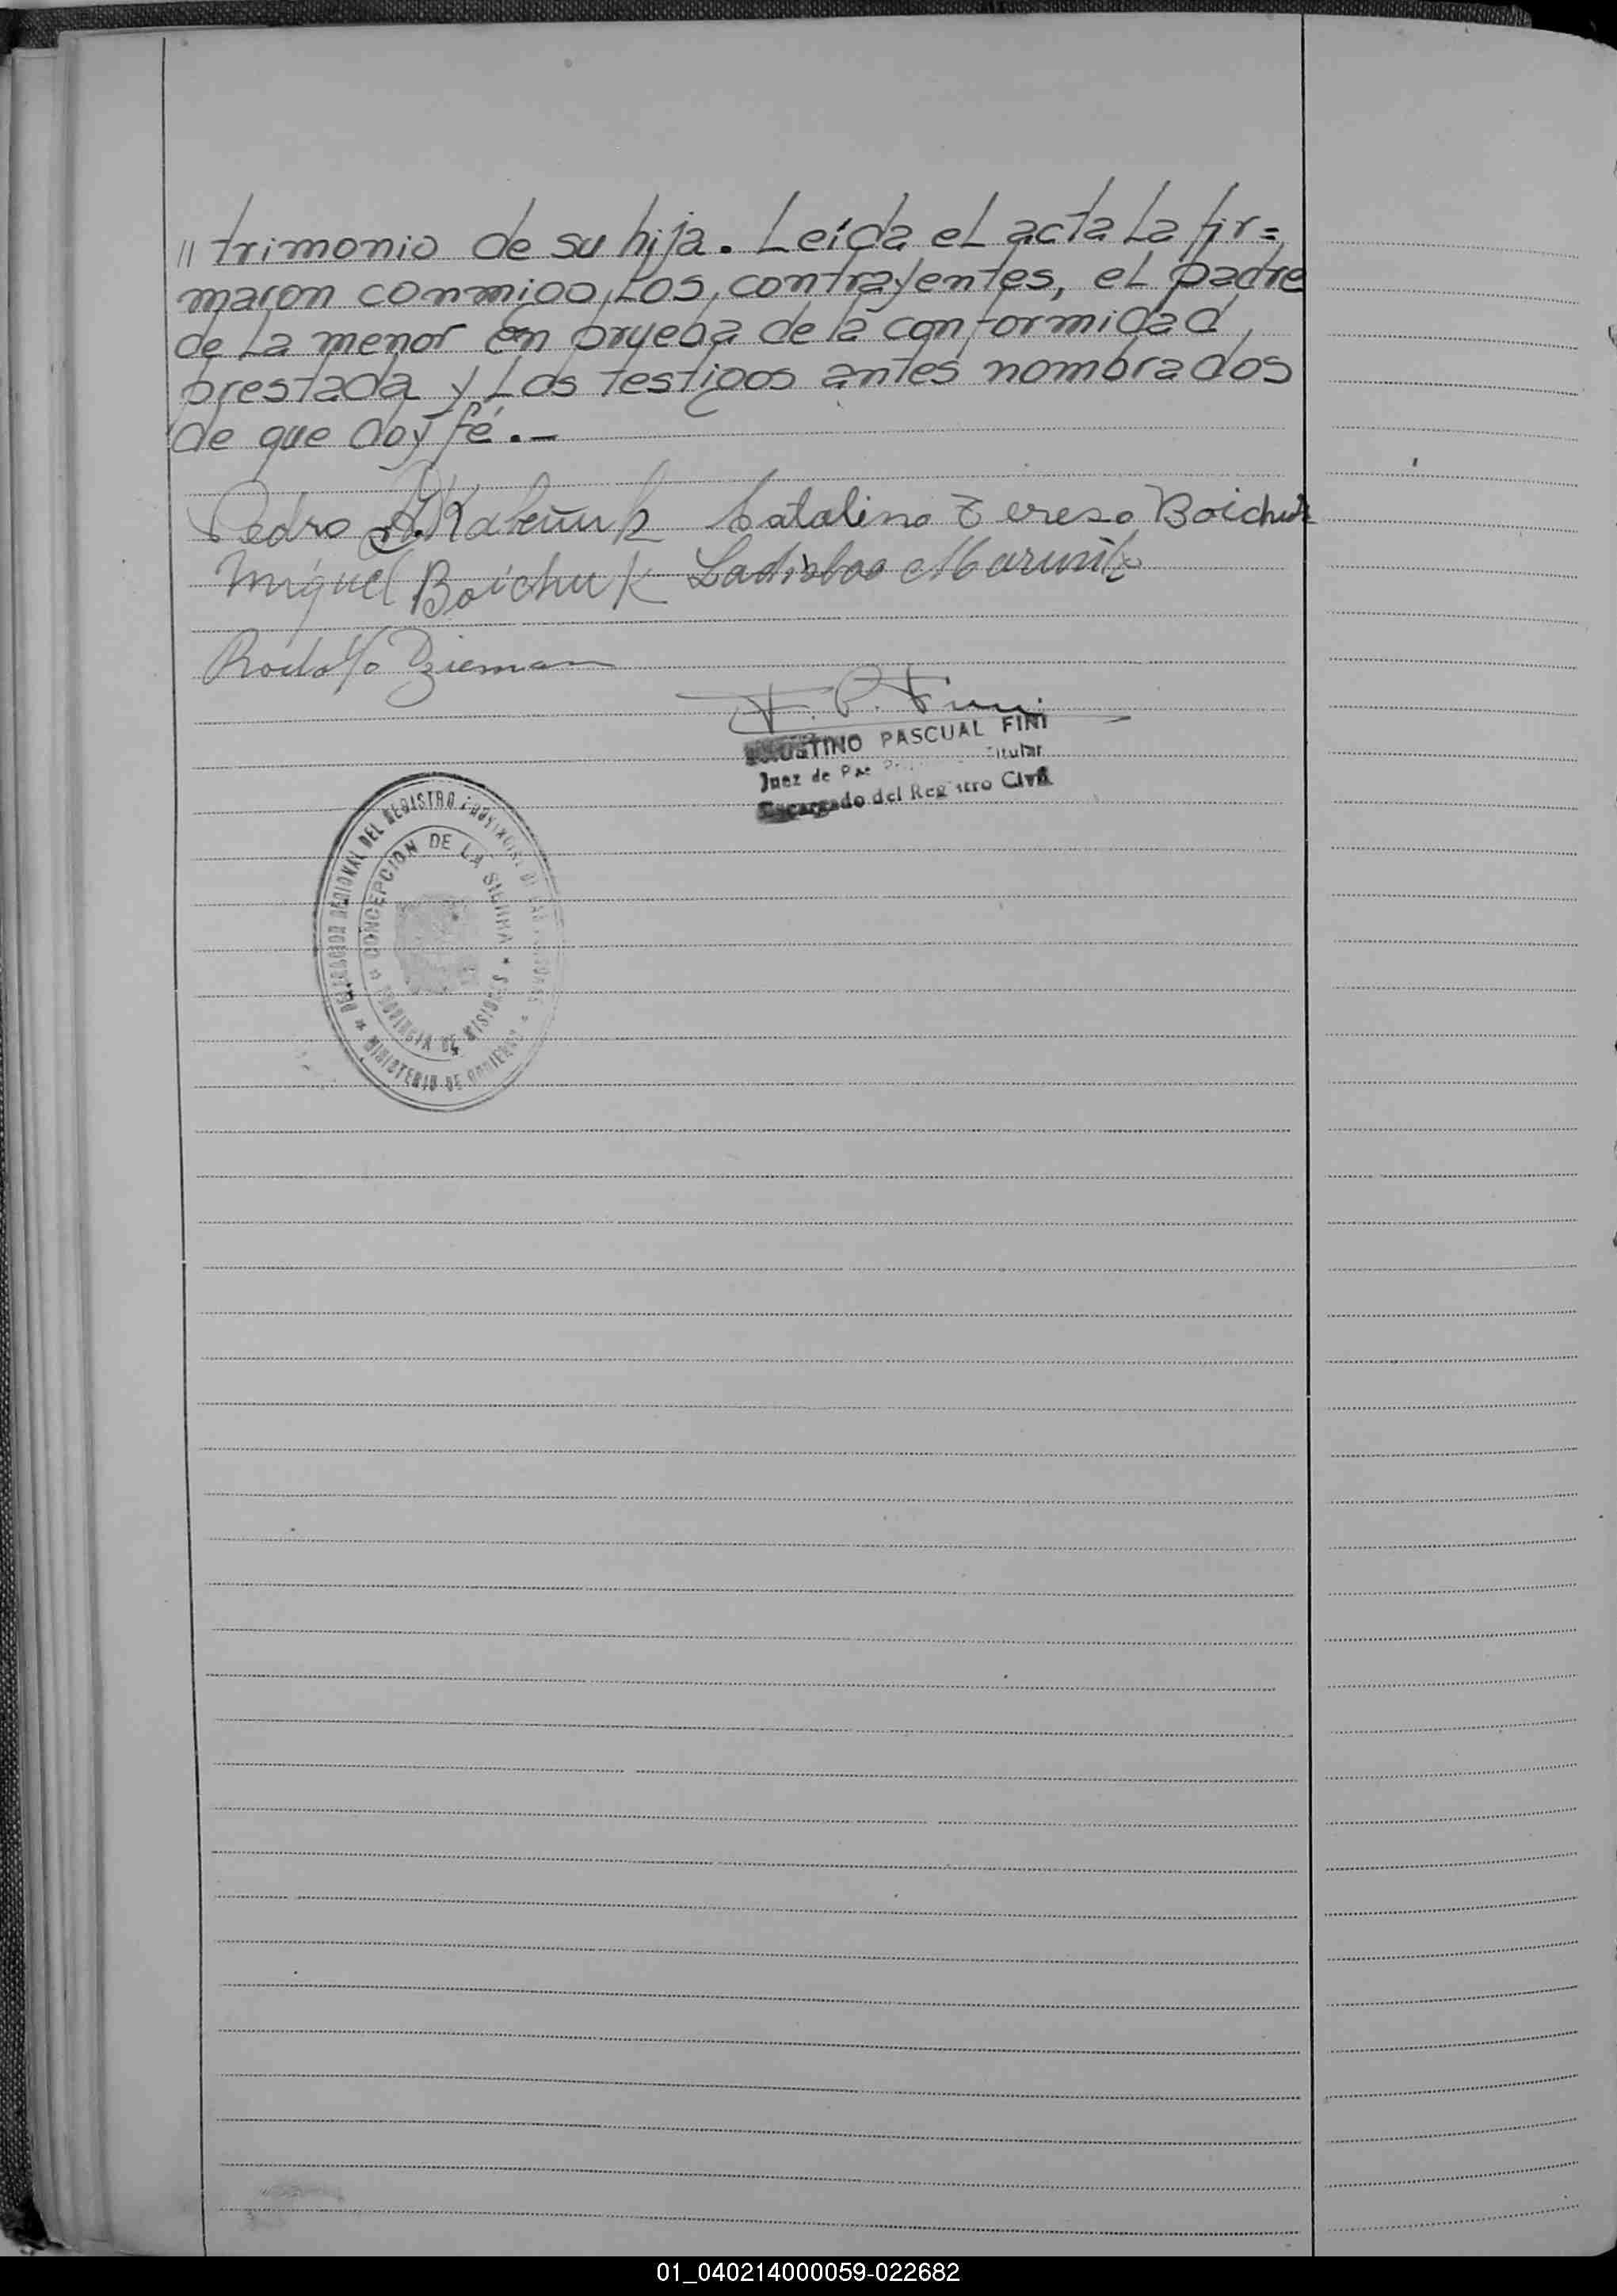 // trimonio de su hija. Leída el acta la fir=
maron conmigo, los contrayentes, el padre
de la menor en prueba de la conformidad
prestada y los testigos antes nombrados
de que doy fé.-
Pedro Catalina Teresa Boichuk
Miguel Boichuk Ladislao
Rodolfo Dzieman
F. P. Fini
FAUSTINO PASCUAL FINI
Juez de Paz Titular
Encargado del Registro Civil
DELEGACION REGIONAL DEL REGISTRO PROVINCIAL DE LAS PERSONAS
* CONCEPCION DE LA SIERRA *
PROVINCIA DE MISIONES
* MINISTERIO DE GOBIERNO *
01_040214000059-022682